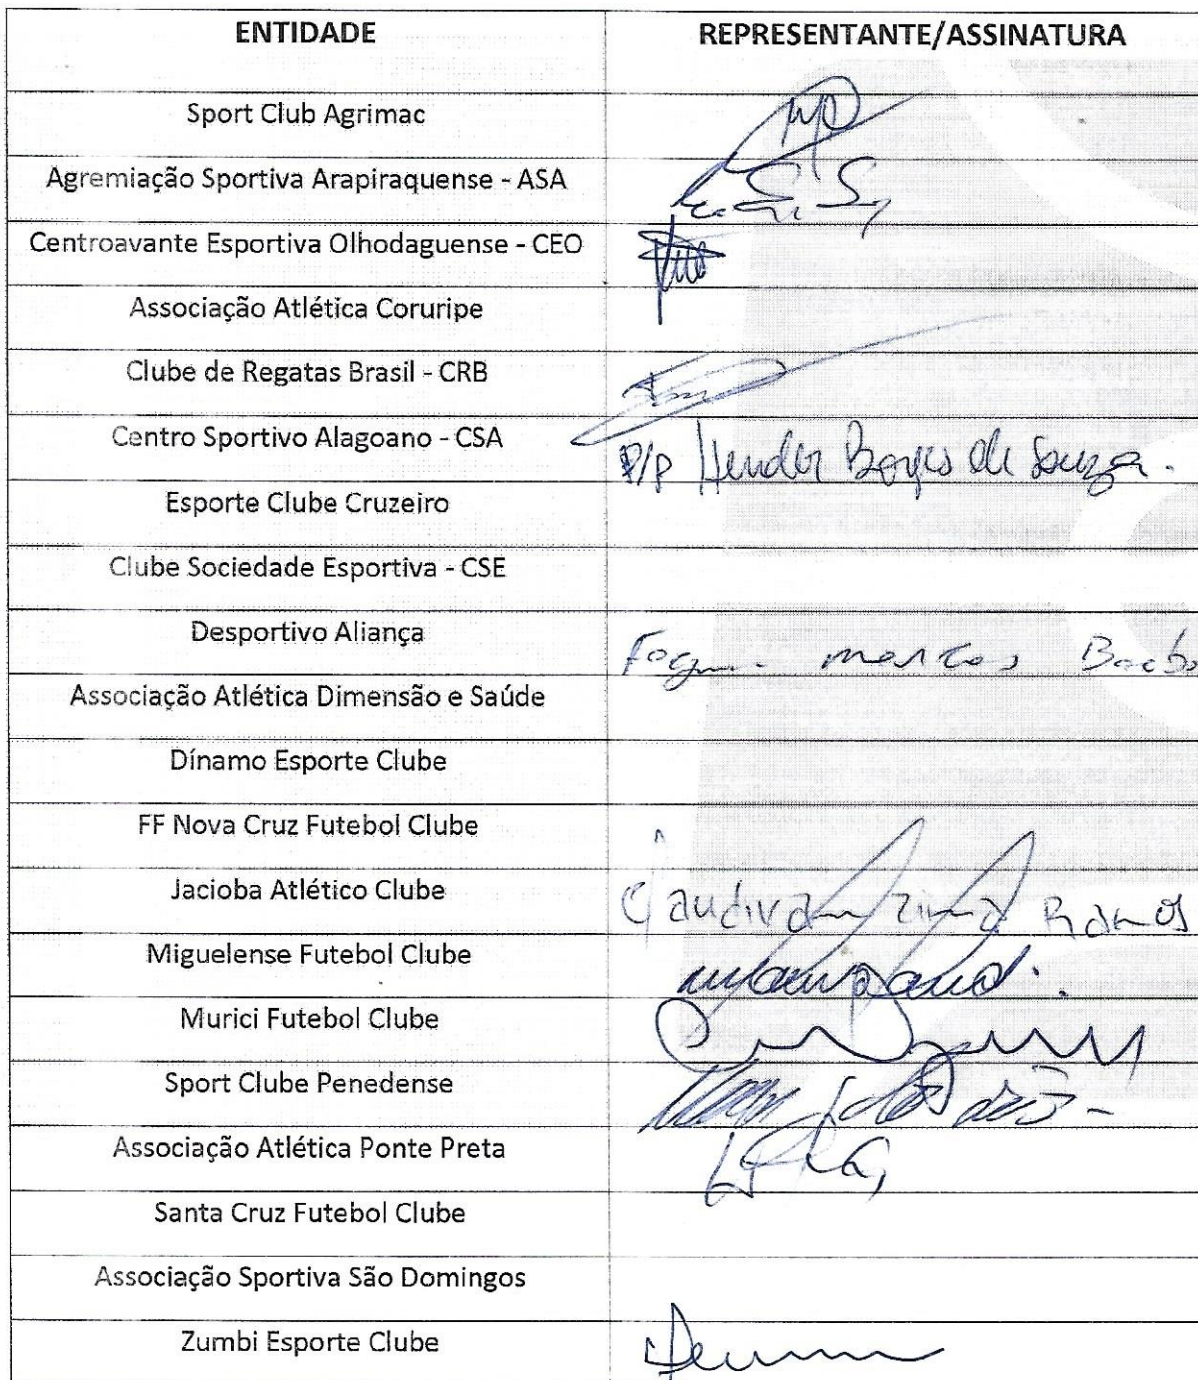 ENTIDADE REPRESENTANTE/ASSINATURA
Sport Club Agrimac
Agremiação Sportiva Arapiraquense - ASA
Centroavante Esportiva Olhodaguense - CEO
Associação Atlética Coruripe
Clube de Regatas Brasil - CRB
Centro Sportivo Alagoano - CSA P/P Hender Borges de Souza.
Esporte Clube Cruzeiro
Clube Sociedade Esportiva - CSE
Desportivo Aliança
Associação Atlética Dimensão e Saúde
Dínamo Esporte Clube
FF Nova Cruz Futebol Clube
Jacioba Atlético Clube Claudivam Lima Ramos
Miguelense Futebol Clube
Murici Futebol Clube
Sport Clube Penedense
Associação Atlética Ponte Preta
Santa Cruz Futebol Clube
Associação Sportiva São Domingos
Zumbi Esporte Clube